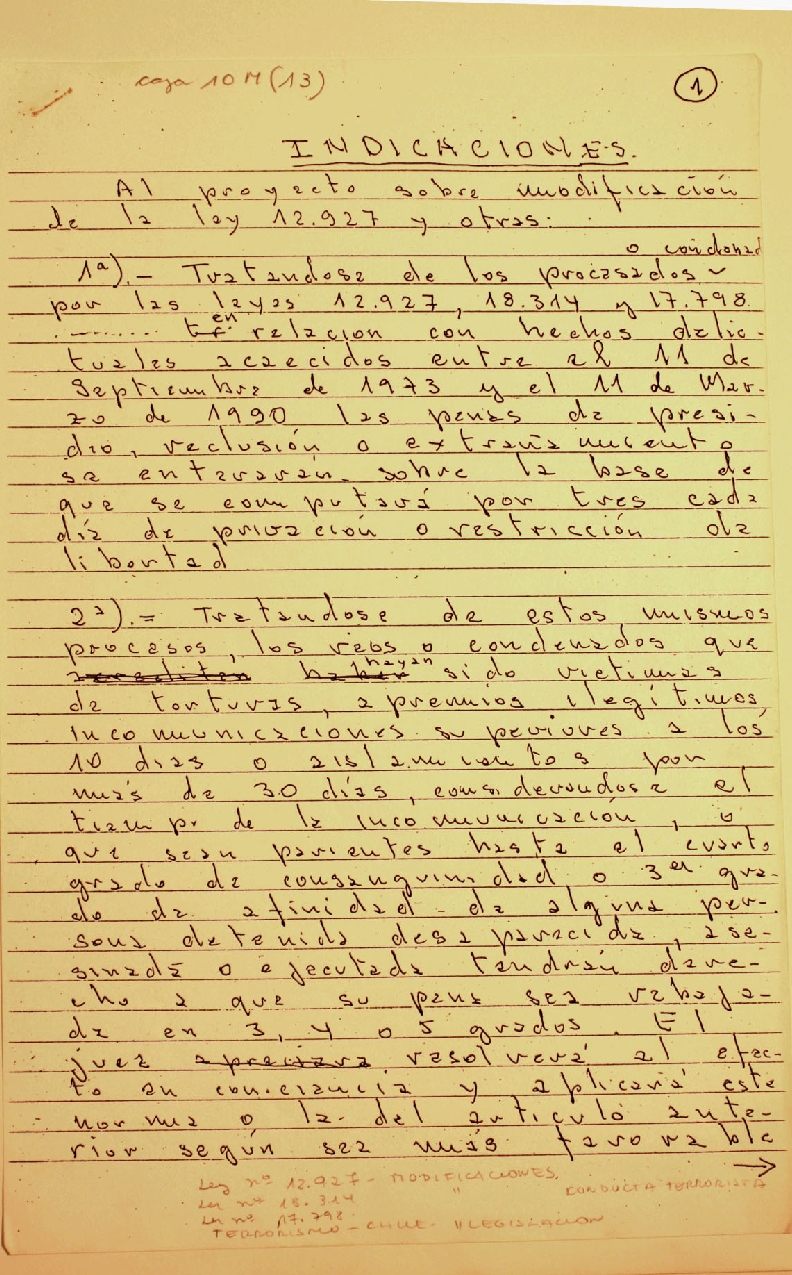 caja 10 M (13)
1
INDICACIONES.
Al proyecto sobre modificación
de la ley 12.927 y otras:
o condenad
1a).- Tratandose de los procesados
por las leyes 12.927, 18.314 y 17.798
en
relacion con hechos delic-
tuales acaecidos entre el 11 de
Septiembre de 1973 y el 11 de Mar-
zo de 1990 las penas de presi-
dio, reclusión o extrañamiento
se enteraran sobre la base de
que se computará por tres cada
día de privación o restricción de
libertad
2a).= Tratandose de estos mismos
procesos, los reos o condenados que
acrediten haber hayan sido victimas
de torturas, apremios ilegítimos,
incomunicaciones superiores a los
10 dias o aislamientos por
más de 30 días, considerandose el
tiempo de la incomunicación, o
que sean parientes hasta el cuarto
grado de consanguinidad o 3er gra-
do de afinidad de alguna per-
sona detenida desaparecida, ase-
sinada o ejecutada tendrán dere-
cho a que su pena sea rebaja-
da en 3, 4 o 5 grados. El
juez apreciara resolverá al efec-
to en conciencia y aplicará esta
norma o la del articulo ante-
rior según sea más favorable
Ley nº 12.927 - MODIFICACIONES.
Ley nº 18.314 " CONDUCTA TERRORISTA
Ley nº 17.798.
TERRORISMO - CHILE - LEGISLACION